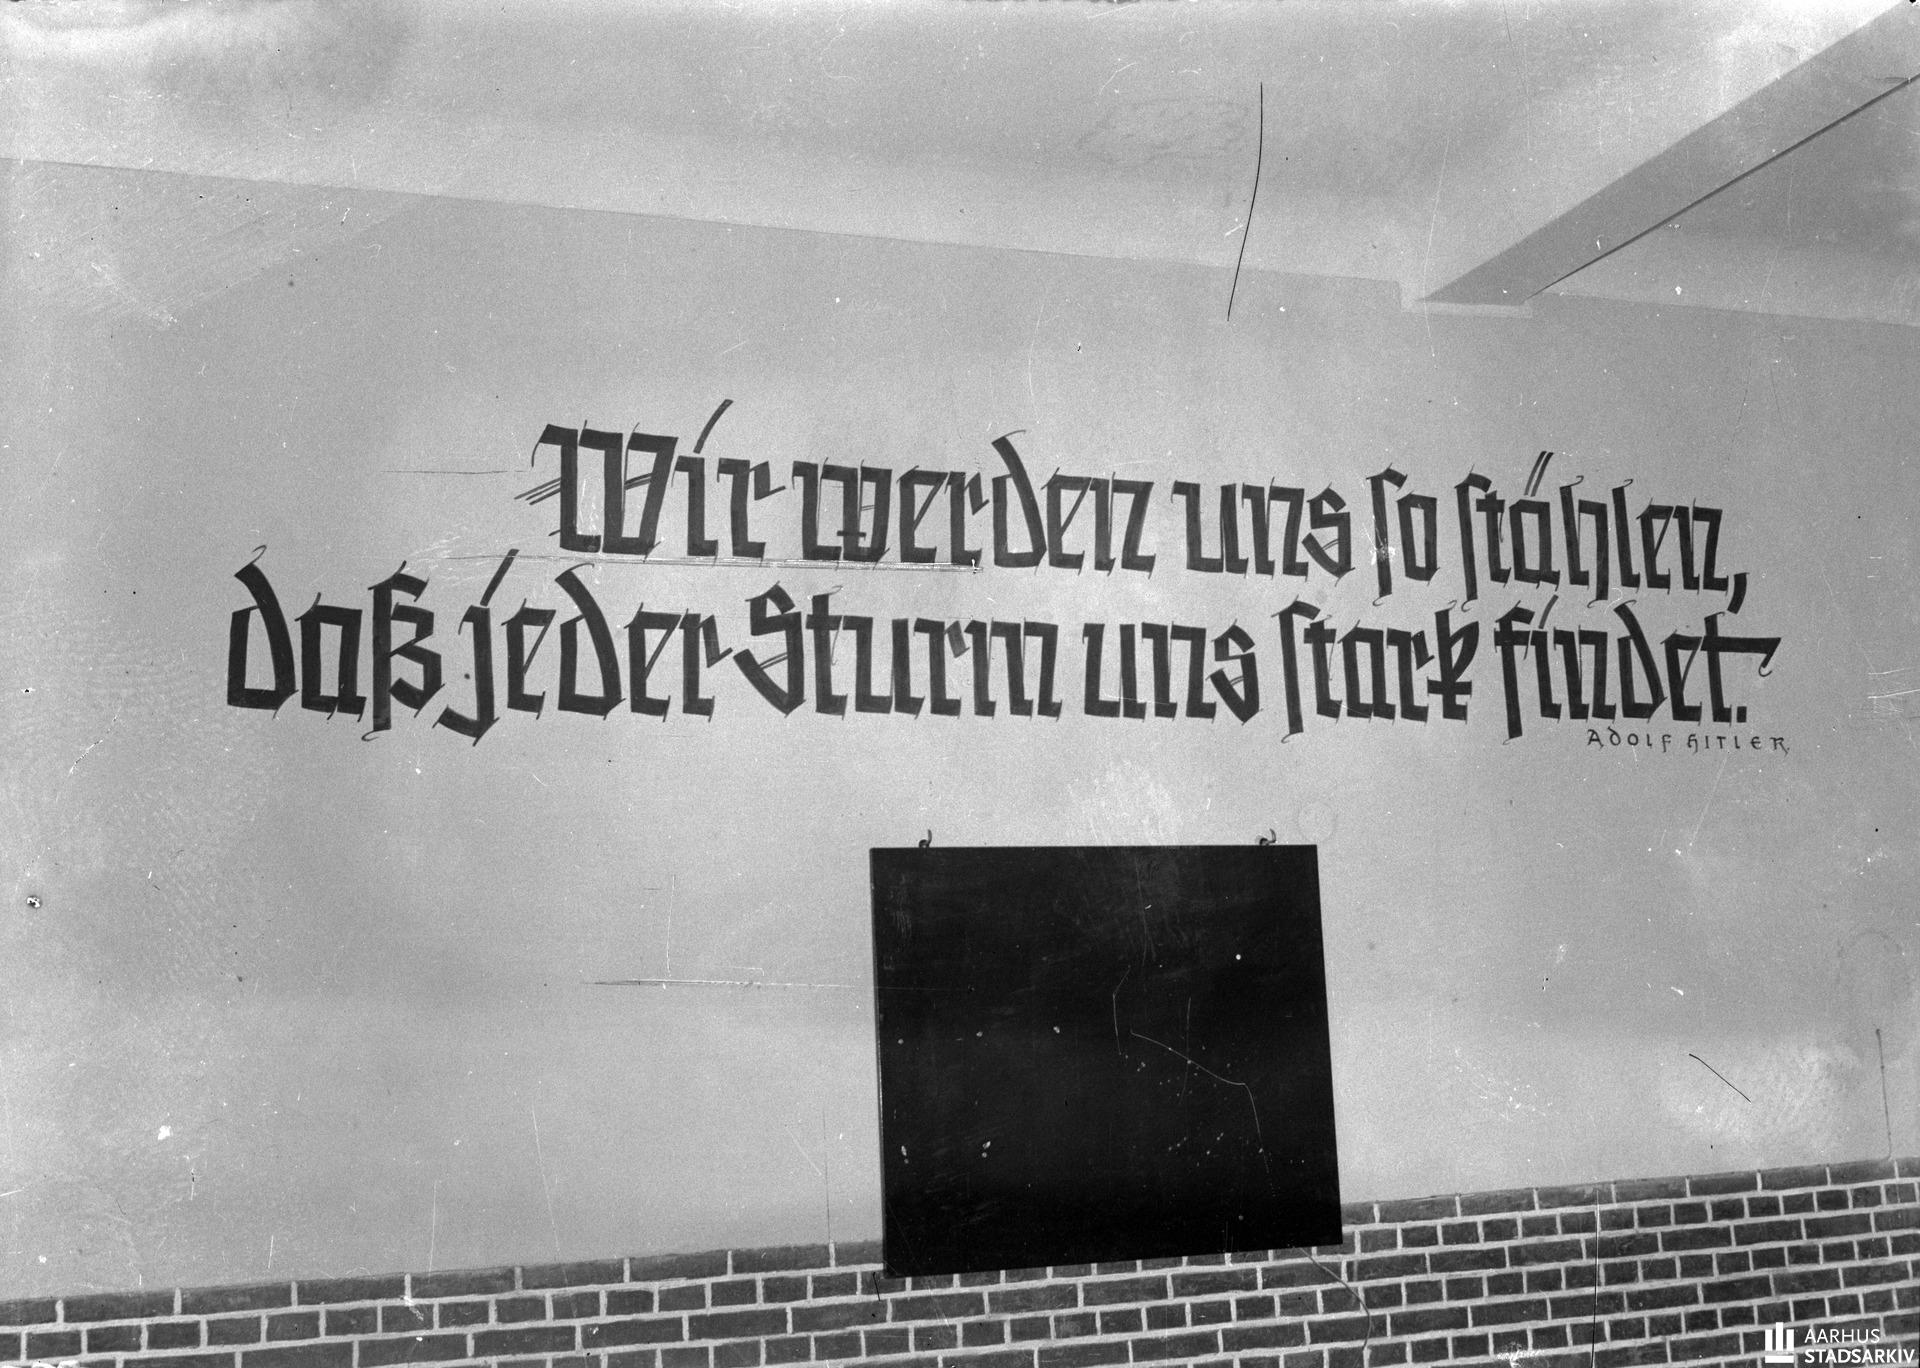 Wir werden uns so stählen,
daß jeder Sturm uns stark findet.
ADOLF HITLER
AARHUS
STADSARKIV